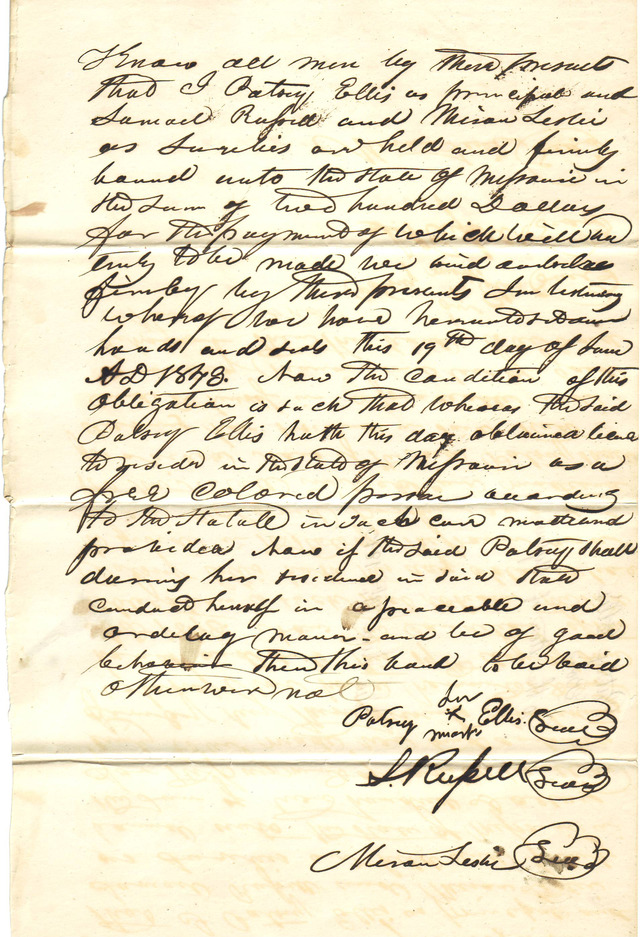 Know all men by these presents
that I Patsey Ellis as principal and
Samuel Russell and Miron Leslie
as Sureties are held and firmly
bound unto the State of Missouri in
the sum of two hundred Dollars
for the payment of which well an
truly to be made we bind ourselves
firmly by these presents In testimony
whereof we have hereunto set our
hands and seals this 19th day of June
AD 1843. Now the condition of this
obligation is such that whereas the said
Patsey Ellis hath this day obtained licence
to reside in the State of Missouri as a
free colored person according
to the statute in such case made and
provided Now if the said Patsey shall
during her residence in said State
conduct herself in a peaceable and
orderly maner and be of good
behavior then this bond to be void
otherwise not
her
Patsey x Ellis. Seal
mark
S. Russell Seal
Miron Leslie Seal